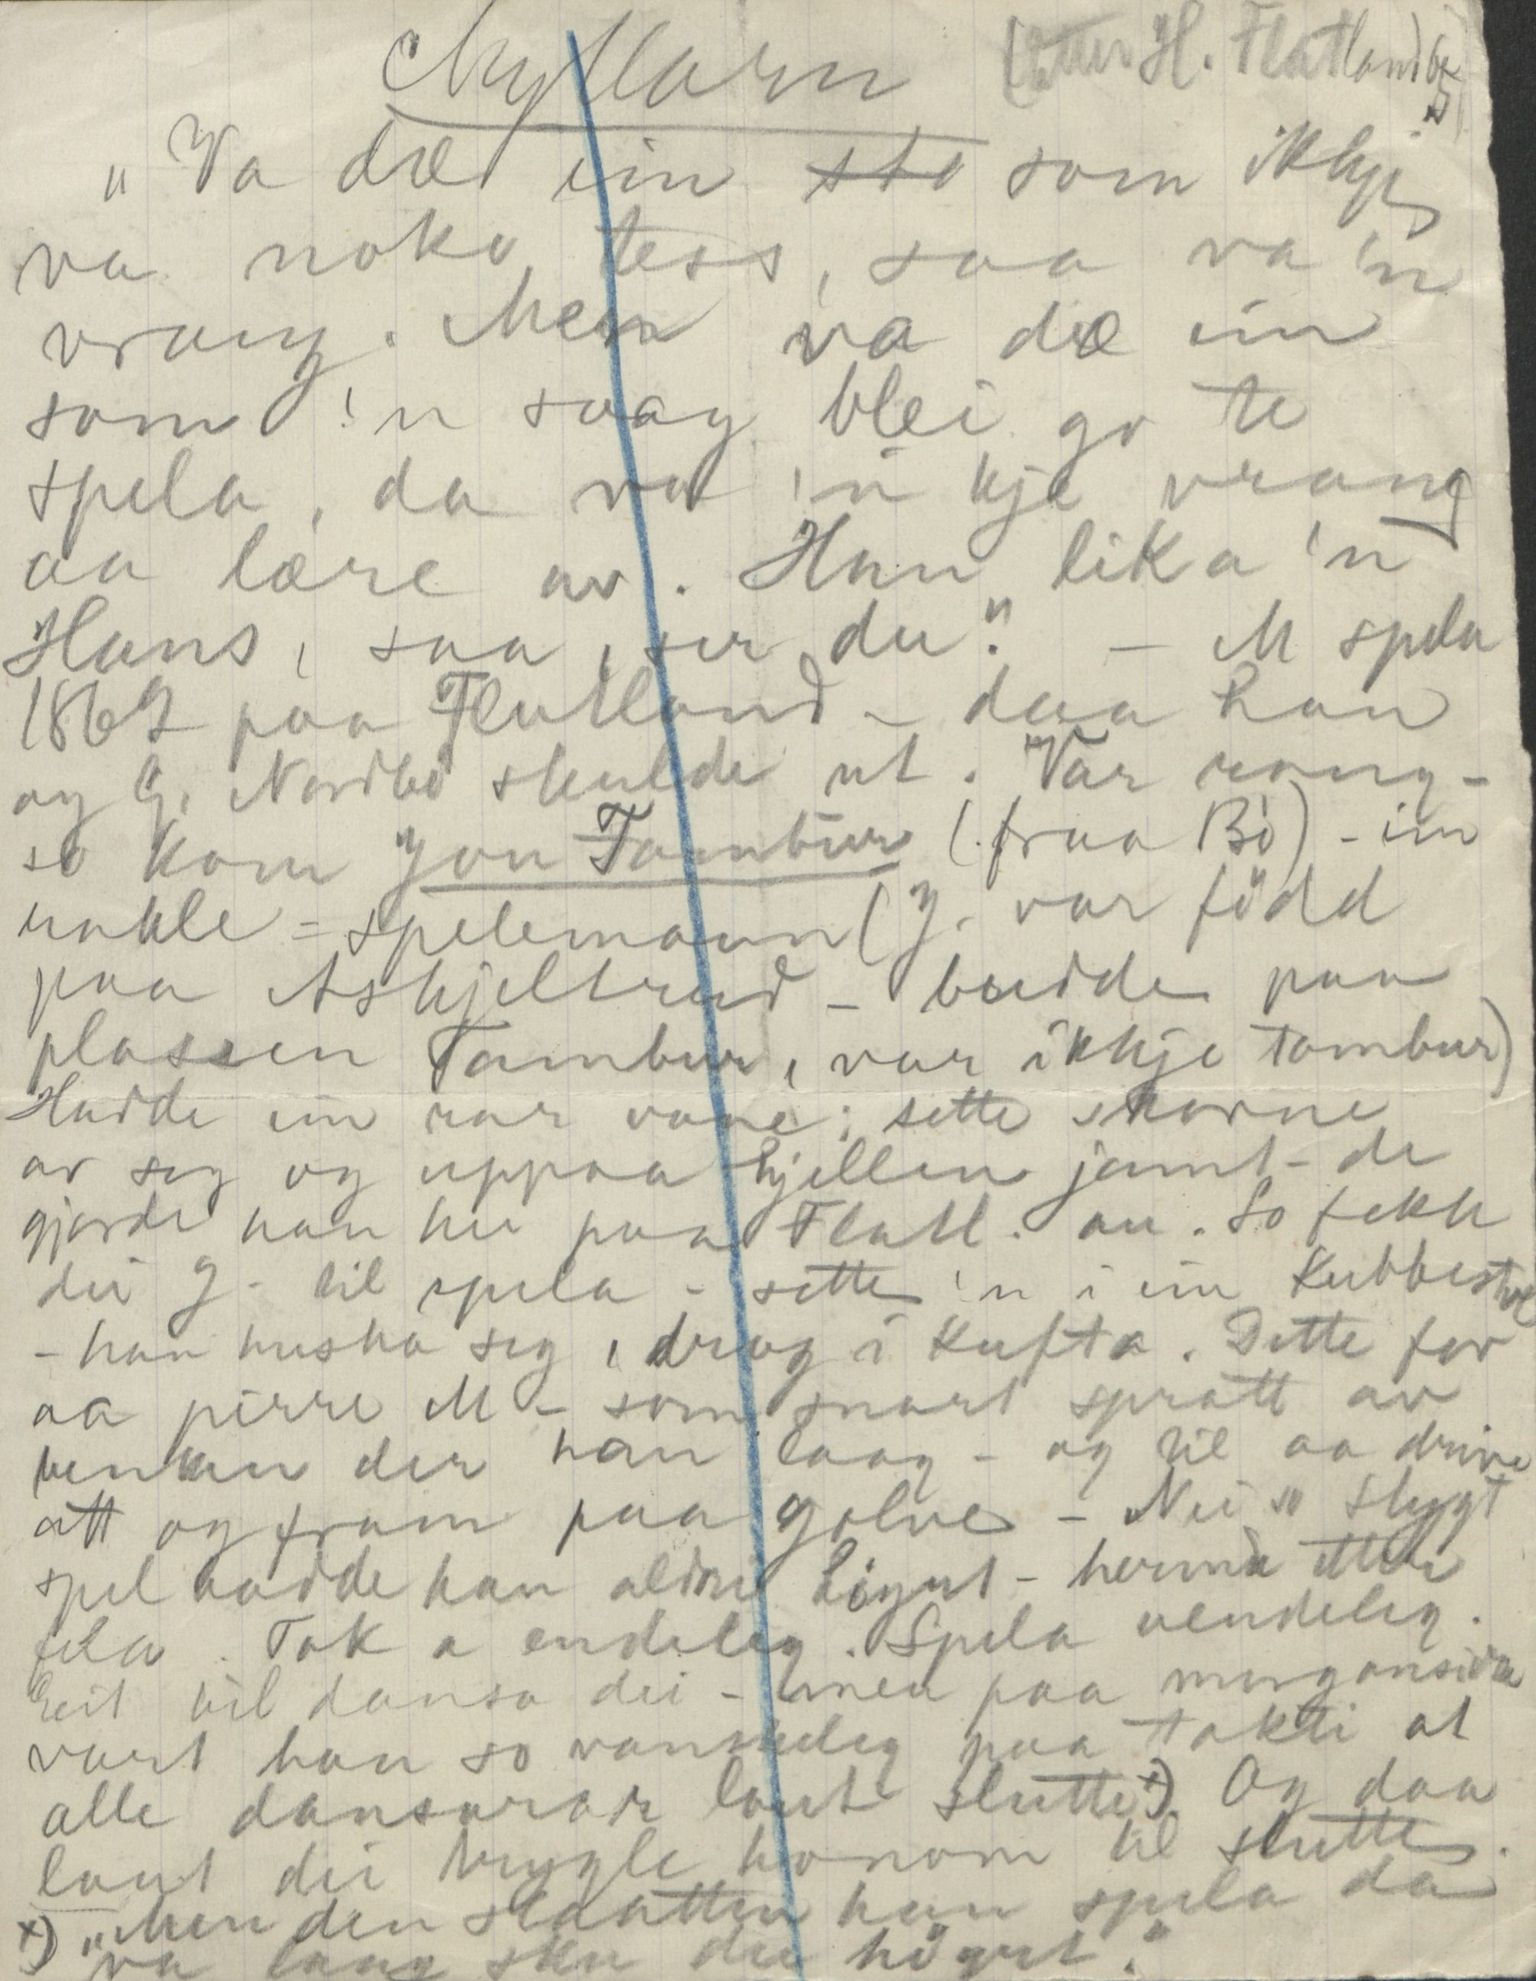 Myllarn (etter H. Flatland)
"Va dæ ein sto som ikkje
va noko tess, saa va 'n
vrang. Men va dæ ein
som 'n saag blei go te
spela, da va 'n kje vrang
aa lære av. Han lika 'n
Hans, saa, ser du." - M spela
1867 paa Flatland - daa han
og G. Nordbø skulde ut. Var vrang -
so kom Jon Tambur (fraa Bø) - ein
rakle-spelemann (J. var född
paa Askjeltrud - budde paa
plassen Tambur, var ikkje tambur)
Hadde ein rar vane; sette skorne
av seg og uppaa hjellen jamt - de
gjorde han her paa Flatl. au. So fekk
dei J. til spela - sette 'n i ein Kubbestol
- han huska seg, drog i Kufta. Dette for
aa pirre M - som snart spratt av
benken der han laag - og til aa drive
att og fram paa golve - Nei so stygt
spel hadde han aldri höyrt - herma etter
fela. Tok a endeleg. Spela uendeleg.
Leit til dansa dei - men paa morgonsida
vart han so vanskeleg paa takti at
alle dansarar laut slutte x) Og daa
laut dei trygle honom til slutte.
x) "Men den slaatten han spela da
va laag sku du höyrt."